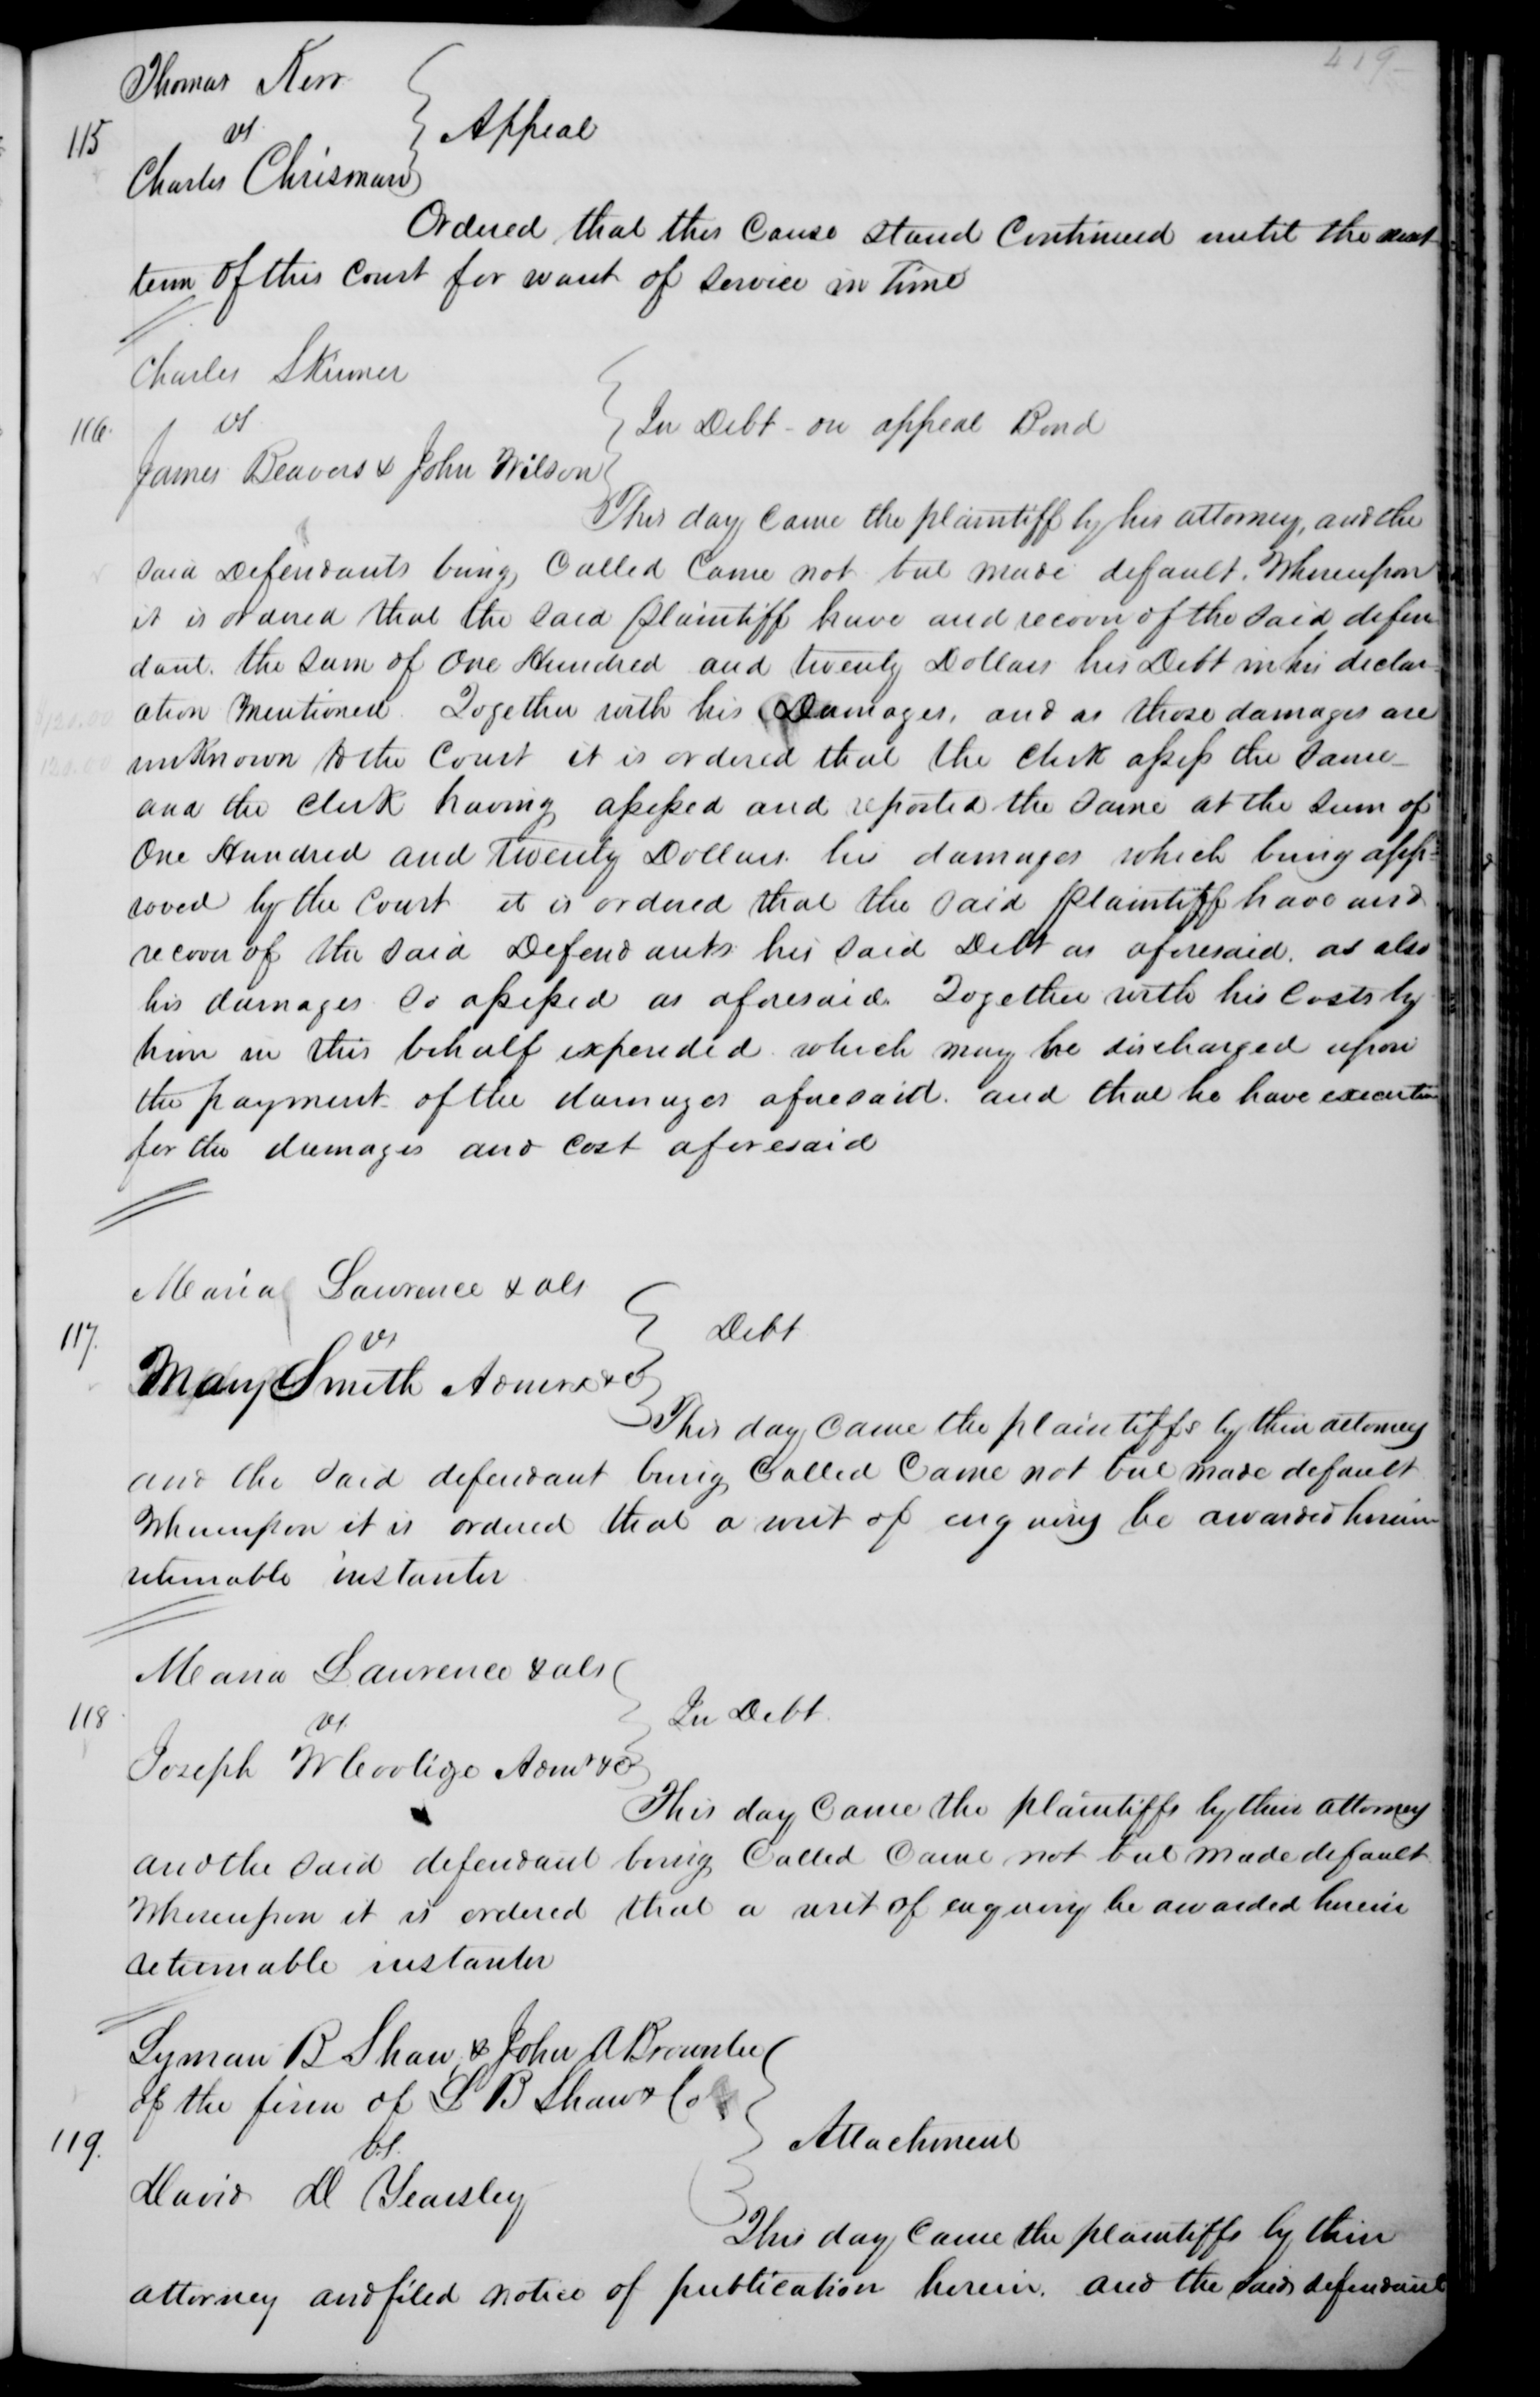 419
Thomas Kerr
115 vs } Appeal
Charles Chrisman
Ordered that this Cause stand Continued until the next
term of this Court for want of service in time
Charles Skinner
116. vs } In Debt - on appeal Bond
James Beavers & John Wilson
This day Came the plaintiff by his attorney, and the
said Defendants being Called Came not but made default. Whereupon
it is ordered that the said plaintiff have and recover of the said defen
dant. the sum of One Hundred and twenty Dollars his Debt in his declar
ation Mentioned. Together with his Damages, and as those damages are
$120.00
unknown to the Court it is ordered that the Clerk assess the same -
120.00
and the clerk having assessed and reported the same at the sum of
One Hundred and Twenty Dollars. his damages which being app=
roved by the Court it is ordered that the said plaintiff have and
recover of the said Defendants his said Debt as aforesaid. as also
his damages so assessed as aforesaid. Together with his Costs by
him in this behalf expended which may be discharged upon
the payment of the damages aforesaid. and that he have execution
for the damages and Cost aforesaid
Maria Lawrence & als
117. vs } Debt
Mary Smith Admrx &c
This day Came the plaintiffs by their attorney
and the said defendant being Called Came not but made default
Whereupon it is ordered that a writ of enquiry be awarded herein
returnable instanter
Maria Lawrence & als
118 vs. } In Debt.
Joseph W Coolige Admr &c
This day Came the plaintiffs by their attorney
and the said defendant being Called Came not but made default.
Whereupon it is ordered that a writ of enquiry be awarded herein
returnable instanter
Lyman B Shaw & John A Brownlee
of the firm of L B Shaw & Co
119. vs. } Attachment
David D Yearsley
This day Came the plaintiffs by their
attorney and filed notice of publication herein. and the said defendant